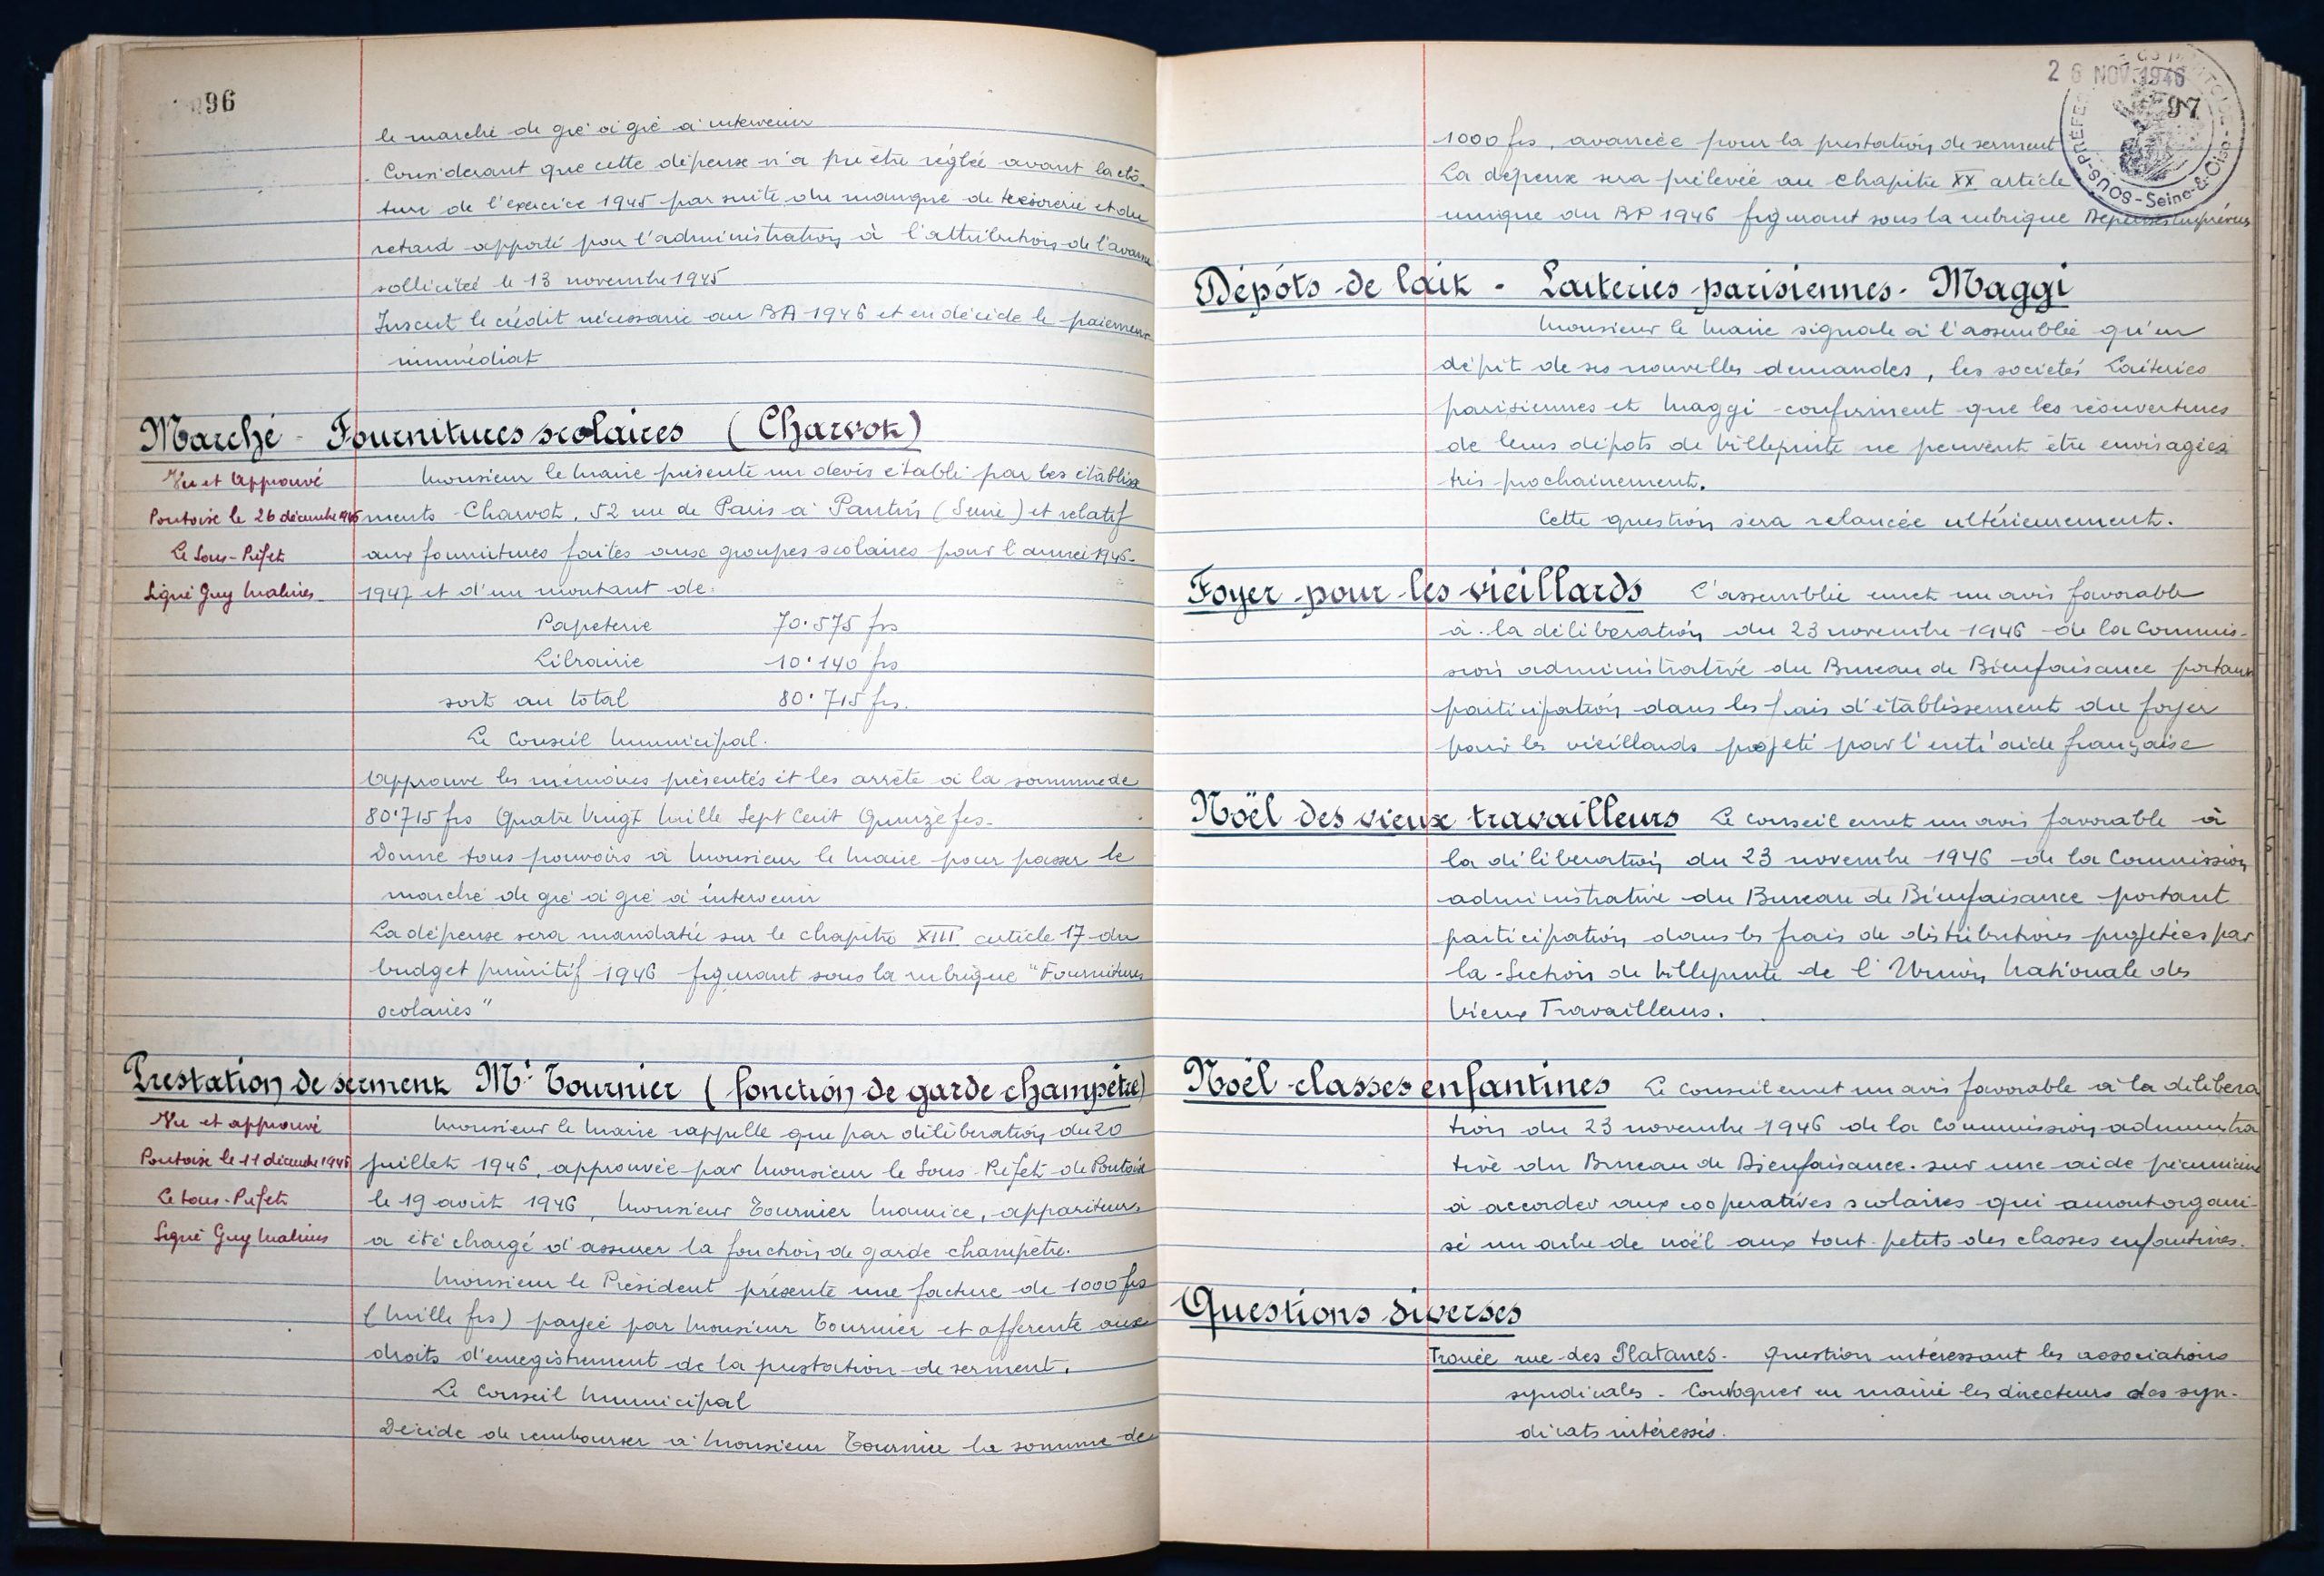 96
le marché de gré à gré à intervenir
Considerant que cette dépense n'a pu être réglée avant la clô-
ture de l'exercice 1945 par suite du manque de trésorerie et du
retard apporté par l'administration à l'attribution de l'avance
sollicitée le 13 novembre 1945
Inscrit le crédit nécessaire au BA 1946 et en décide le paiement
immédiat
Marché - Fournitures scolaires (Charvot)
Vu et Approuvé
Pontoise le 26 décembre 1946
Le Sous-Préfet
Signé Guy Malines
Monsieur le Maire présente un devis établi par les établisse
ments Charvot, 52 rue de Paris à Pantin (Seine) et relatif
aux fournitures faites aux groupes scolaires pour l'année 1946-
1947 et d'un montant de:
Papeterie 70.575 frs
Librairie 10.140 frs
soit au total 80.715 frs.
Le Conseil Municipal.
Approuve les mémoires présentés et les arrête à la somme de
80.715 frs Quatre Vingt Mille Sept Cent Quinze frs.
Donne tous pouvoirs à Monsieur le Maire pour passer le
marché de gré à gré à intervenir
La dépense sera mandatée sur le chapitre XIII article 17 du
budget primitif 1946 figurant sous la rubrique "Fournitures
scolaires"
Prestation de serment Mr Tournier (fonction de garde champêtre)
Vu et approuvé
Pontoise le 11 décembre 1946
Le Sous-Préfet
Signé Guy Malines
Monsieur le Maire rappelle que par délibération du 20
juillet 1946, approuvée par Monsieur le Sous-Préfet de Pontoise
le 19 août 1946, Monsieur Tournier Maurice, appariteur,
a été chargé d'assurer la fonction de garde champêtre.
Monsieur le Président présente une facture de 1000 frs
(Mille frs) payée par Monsieur Tournier et afferente aux
droits d'enregistrement de la prestation de serment.
Le Conseil Municipal
Décide de rembourser à Monsieur Tournier la somme de
26 NOV 1946
97
SOUS-PRÉFECTURE DE PONTOISE - Seine-&-Oise
1000 frs, avancée pour la prestation de serment
La dépense sera prélevée au chapitre XX article
unique du BP 1946 figurant sous la rubrique Dépenses imprévues
Dépôts de lait - Laiteries parisiennes - Maggi
Monsieur le Maire signale à l'assemblée qu'en
dépit de ses nouvelles demandes, les sociétés Laiteries
parisiennes et Maggi confirment que les réouvertures
de leurs dépots de Villepinte ne peuvent être envisagées
très prochainement.
Cette question sera relancée ultérieurement.
Foyer pour les vieillards L'assemblée emet un avis favorable
à la délibération du 23 novembre 1946 de la Commis-
sion administrative du Bureau de Bienfaisance portant
participation dans les frais d'établissement du foyer
pour les vieillards projeté par l'entr'aide française
Noël des vieux travailleurs Le Conseil emet un avis favorable à
la délibération du 23 novembre 1946 de la Commission
administrative du Bureau de Bienfaisance portant
participation dans les frais de distributions projetées par
la Section de Villepinte de l'Union Nationale des
Vieux Travailleurs.
Noël classes enfantines Le Conseil emet un avis favorable à la délibera
tion du 23 novembre 1946 de la Commission administra
tive du Bureau de Bienfaisance sur une aide pécuniaire
à accorder aux coopératives scolaires qui auront organi-
sé un arbre de noël aux tout-petits des classes enfantines.
Questions diverses
Trouée rue des Platanes - Question intéressant les associations
syndicales - Convoquer en mairie les directeurs des syn-
dicats intéressés.